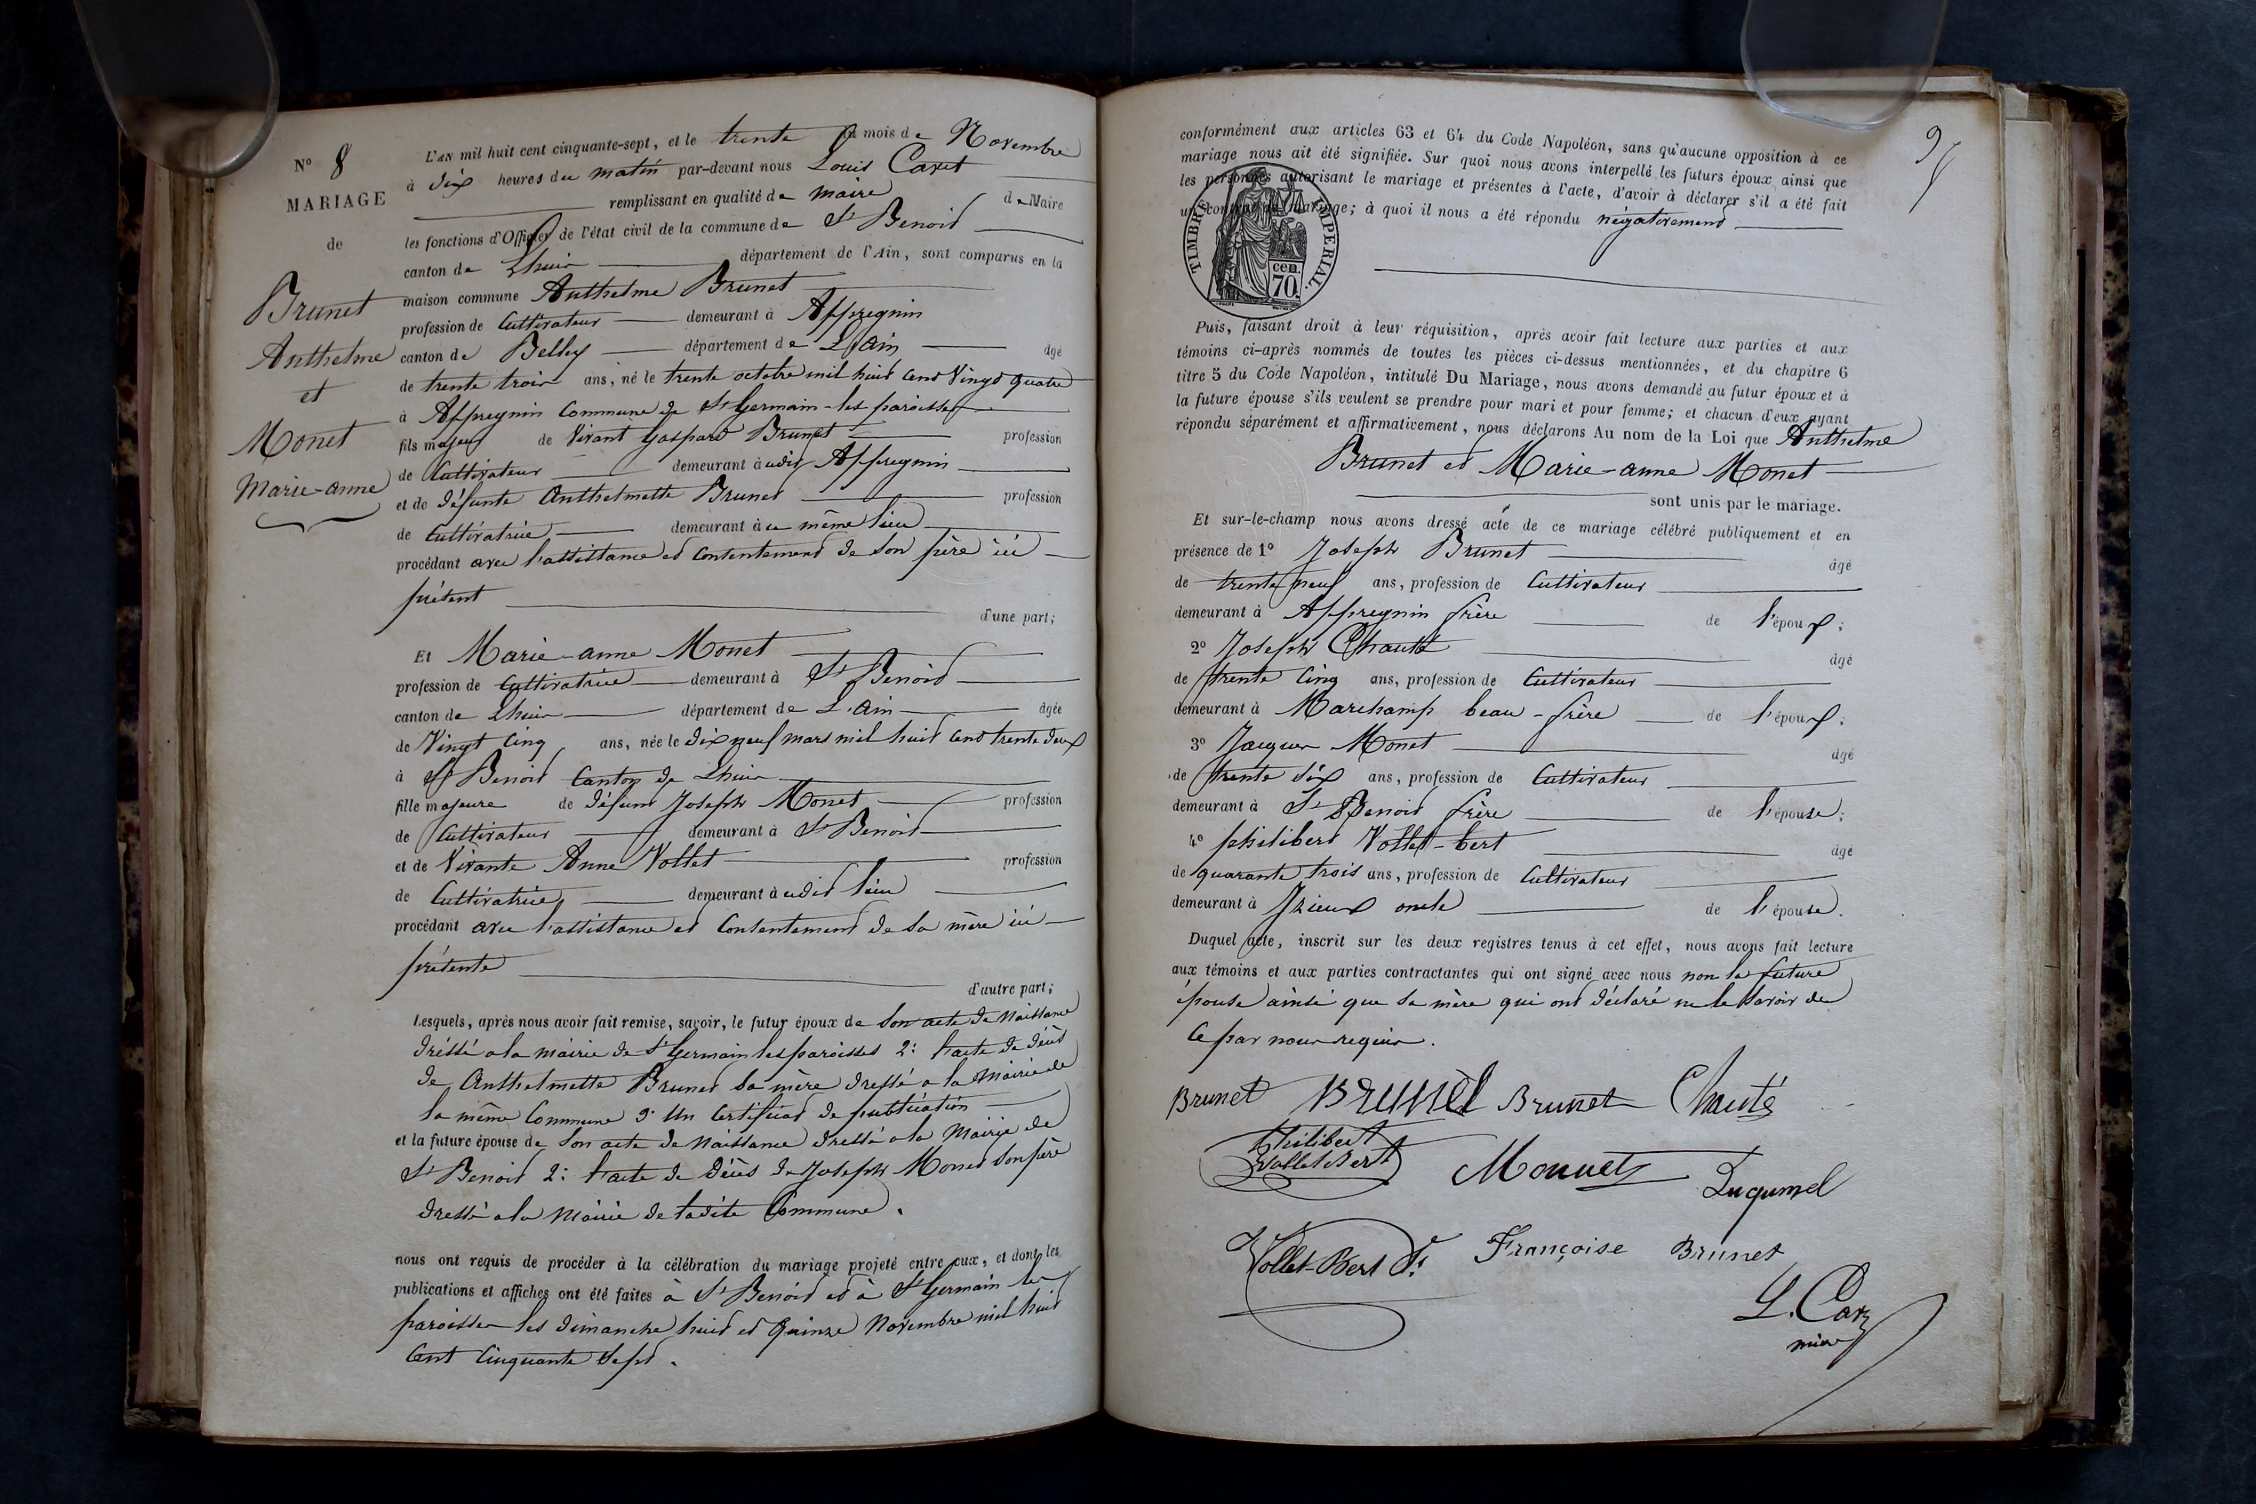 N° 8
MARIAGE
de
Brunet
Anthelme
et
Monet
Marie-anne
L'AN mil huit cent cinquante-sept, et le trente du mois de Novembre
à dix heures du matin par-devant nous Louis Caret
remplissant en qualité de maire de Maire
les fonctions d'Officier de l'état civil de la commune de St Benoid
canton de Lhuis département de l'Ain, sont comparus en la
maison commune Anthelme Brunet
profession de Cultivateur demeurant à Appregnin
canton de Belley département de L'Ain âgé
de trente trois ans, né le trente octobre mil huit cent Vingt quatre
à Appregnin Commune de St Germain-les paroisses
fils majeur de Vivant Gaspard Brunet profession
de Cultivateur demeurant à udit Appregnin
et de défunte Anthelmette Brunet profession
de Cultivatrice demeurant à ce même lieu
procédant avec l'assistance et Consentement de son père ici
présent
d'une part;
Et Marie-anne Monet
profession de Cultivatrice demeurant à St Benoid
canton de Lhuis département de L'Ain âgée
de Vingt Cinq ans, née le dix neuf mars mil huit cent trente deux
à St Benoid Canton de Lhuis
fille majeure de défunt Joseph Monet profession
de Cultivateur demeurant à St Benoid
et de Vivante Anne Vollet profession
de Cultivatrice demeurant à udit lieu
procédant avec l'assistance et Consentement de sa mère ici
présente
d'autre part;
Lesquels, après nous avoir fait remise, savoir, le futur époux de son acte de Naissance
dréssé a la mairie de St Germain les paroisses 2: l'acte de décès
de Anthelmette Brunet sa mère dressé a la Mairie de
la même Commune 3° Un Certificat de publication
et la future épouse de son acte de Naissance dressé a la Mairie de
St Benoid 2: l'acte de décès de Joseph Monet son père
dressé a la Mairie de ladite Commune.
nous ont requis de procéder à la célébration du mariage projeté entre eux, et dont les
publications et affiches ont été faites à St Benoid et à St Germain les
paroisses les dimanche huit et Quinze Novembre mil huit
Cent Cinquante Sept.
95
conformément aux articles 63 et 64 du Code Napoléon, sans qu'aucune opposition à ce
mariage nous ait été signifiée. Sur quoi nous avons interpellé les futurs époux ainsi que
les personnes autorisant le mariage et présentes à l'acte, d'avoir à déclarer s'il a été fait
un contrat de mariage; à quoi il nous a été répondu négativement
TIMBRE IMPERIAL.
cen.
70.
Puis, faisant droit à leur réquisition, après avoir fait lecture aux parties et aux
témoins ci-après nommés de toutes les pièces ci-dessus mentionnées, et du chapitre 6
titre 5 du Code Napoléon, intitulé Du Mariage, nous avons demandé au futur époux et à
la future épouse s'ils veulent se prendre pour mari et pour femme; et chacun d'eux ayant
répondu séparément et affirmativement, nous déclarons Au nom de la Loi que Anthelme
Brunet et Marie-anne Monet
sont unis par le mariage.
Et sur-le-champ nous avons dressé acte de ce mariage célébré publiquement et en
présence de 1° Joseph Brunet âgé
de trente neuf ans, profession de Cultivateur
demeurant à Appregnin frère de l'époux;
2° Joseph Chauté âgé
de trente Cinq ans, profession de Cultivateur
demeurant à Marchamp beau-frère de l'époux;
3° Jacques Monet âgé
de trente six ans, profession de Cultivateur
demeurant à St Benoid frère de l'épouse;
4° philibert Vollet-bert âgé
de quarante trois ans, profession de Cultivateur
demeurant à Izieux oncle de l'épouse.
Duquel acte, inscrit sur les deux registres tenus à cet effet, nous avons fait lecture
aux témoins et aux parties contractantes qui ont signé avec nous non la future
épouse ainsi que sa mère qui ont déclaré ne le savoir de
Ce par nous requis.
Brunet Brunet Brunet Chauté
Philibert
Vollet Bert Monnet Duqumel
Vollet-Bert Françoise Brunet
L. Caret